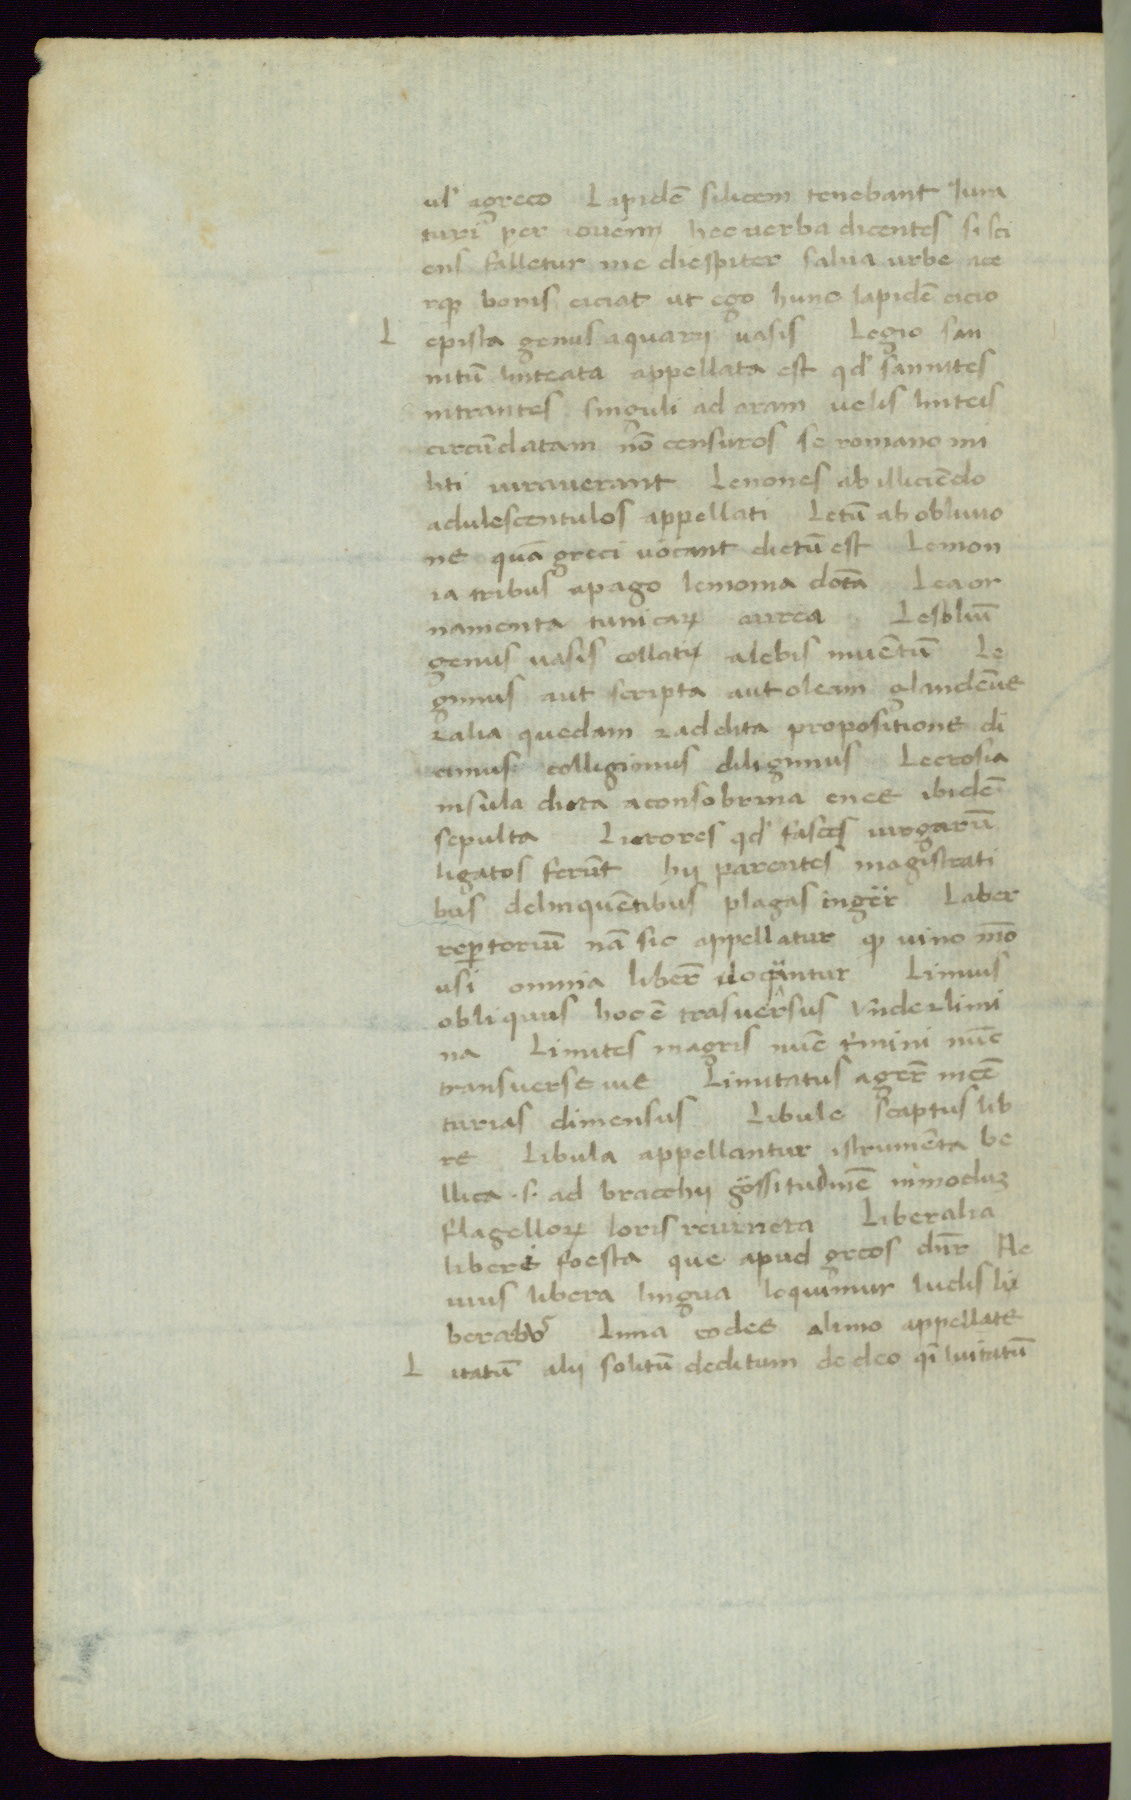 ul' agreco Lapidē silicem tenebant Iura
turi per iouem hec uerba dicentes si sci
ens falletur me diespiter salua urbe arce
rqꝫ bonis eiciat ut ego hunc lapidē eicio
L epista genus aquarij uasis Legio sam
nitū linteata appellata est qd' samnites
intrantes singuli ad aram uelis linteis
circūdatam nō censuros se romano mi
liti iurauerant Lenones ab illiciēdo
adulescentulos appellati Letū ab obliuio
ne quā greci vocant dictū est Lemon
ia tribus apago lemonia dcta Lea or
namenta tunicaꝝ aurea Lesbiū
genus uasis collatiꝝ alebis inuētū Le
gimus aut scripta aut oleam glandēue
ralia quedam raddita propositione di
cimus colligimus diligimus Lectosia
insula dicta aconsobrina enee ibidē
sepulta Lictores qd' fasces uirgarū
ligatos ferūt hij parentes magistrati
bus delinquētibus plagas ingēr Laber
repertoriū nā sic appellatur qꝫ uino īmō
usi omnia liberē loquantur Limus
obliquus hoc ē trasuersus Vnde rlimi
na Limites inagris nūc t'mini nūc
transuerse uie Limitatus ager ē incē
turias dimensus Libule scaptus lib
re Libula appellantur istrumēta be
llica .s. ad bracchij gossitudinē inmoduꝫ
flagelloꝝ loris reuincta Liberalia
liberi foesta que apud grcos dnr Ne
uius libera lingua loquimur ludis li
beralibꝰ Lima codes alimo appellate
L itatū alij solitū deditum de deo qī luitatū